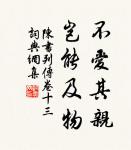 不愛其親
豈能及物
陳書列傳卷十三
詞典網集